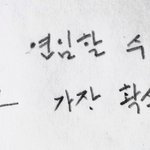 연임할 수
가장 확